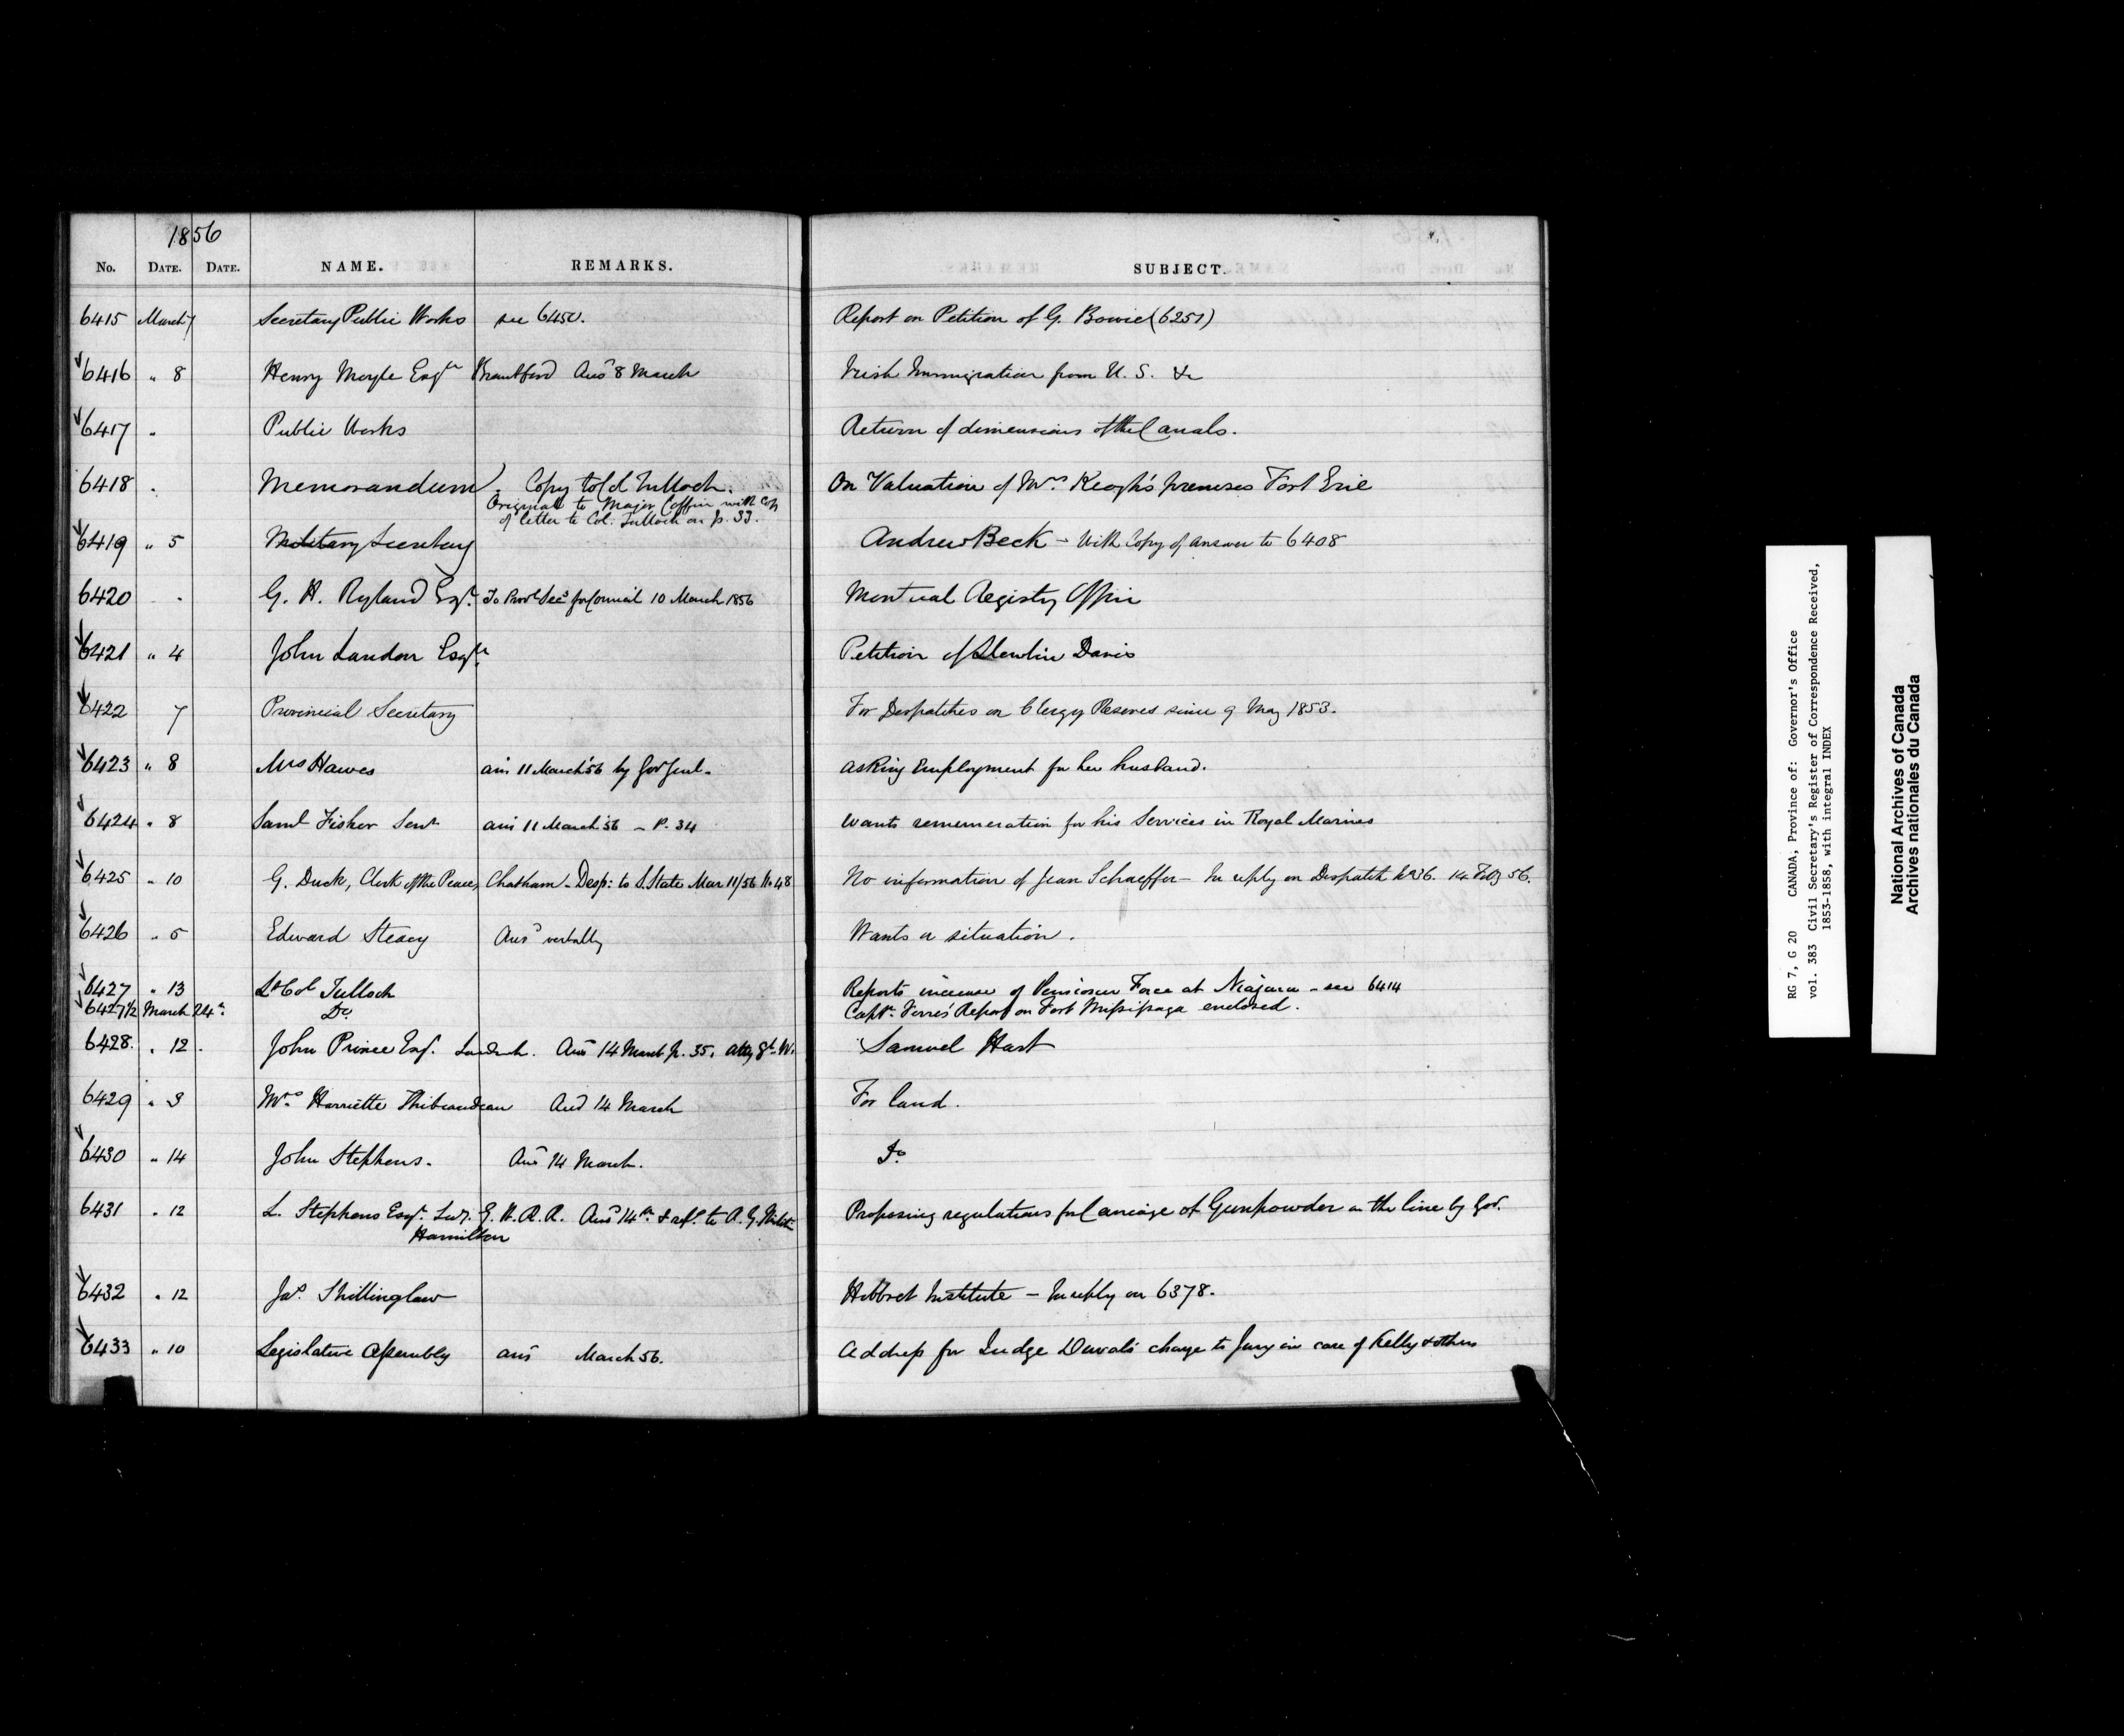 1856
No. DATE. DATE. NAME. REMARKS. SUBJECT.
6415 March 7 Secretary Public Works see 6450. Report on Petition of G. Bowie (6251)
6416 " 8 Henry Moyle Esqre Brantford Ansd 8 March Irish Immigration from U. S. &c
6417 " Public Works Return of dimensions of the Canals.
6418 " Memorandum Copy to Col Tulloch. On Valuation of Mrs. Keogh's premises Fort Erie
Original to Major Coffin with Copy
of letter to Col. Tulloch on p. 33.
6419 " 5 Military Secretary Andrew Beck - With Copy of answer to 6408
6420 " G. H. Ryland Esqr. To Provl Secy for Council 10 March 1856 Montreal Registry Office
6421 " 4 John Landon Esqre Petition of Slewlin Davis
6422 7 Provincial Secretary For Despatches on Clergy Reserves since 9 May 1853.
6423 " 8 Mrs Hawes ansd 11 March '56 by Gov Genl. asking Employment for her husband.
6424 " 8 Saml Fisher Senr ansd 11 March '56 - P. 34 Wants remuneration for his Services in Royal Marines
6425 " 10 G. Duck, Clerk of the Peace, Chatham - Desp: to S. State Mar 11/56 No 48 No information of Jean Schaeffer - In reply on Despatch No 36. 14 Feby 56.
6426 " 5 Edward Steacy Ansd verbally Wants a situation.
6427 " 13 Lt Col Tulloch Reports increase of Pensioner Force at Niagara - see 6414
6427½ March 24th. Do. Captn. Report on Fort Missisaga enclosed.
6428. " 12. John Prince Esqr. Sandwich. Ansd 14 March p. 35. Atty Gl. W. Samuel Hart
6429 " 3 Mrs. Harriette Thibeaudeau Ansd 14 March For land.
6430 " 14 John Stephens. Ansd 14 March. Do
6431 " 12 L. Stephens Esqr. Secy. G. W. R. R. Ansd 14th. & refd. to A. G. Proposing regulations for Carriage of Gunpowder on the line by Gov.
Hamilton
6432 " 12 Jas. Shillinglaw Hibbret Institute - In reply on 6378.
6433 " 10 Legislative Assembly ansd March 56. Address for Judge Duval's charge to Jury in case of Kelly & others
RG 7, G 20 CANADA, Province of: Governor's Office
vol. 383 Civil Secretary's Register of Correspondence Received,
1853-1858, with integral INDEX
National Archives of Canada
Archives nationales du Canada